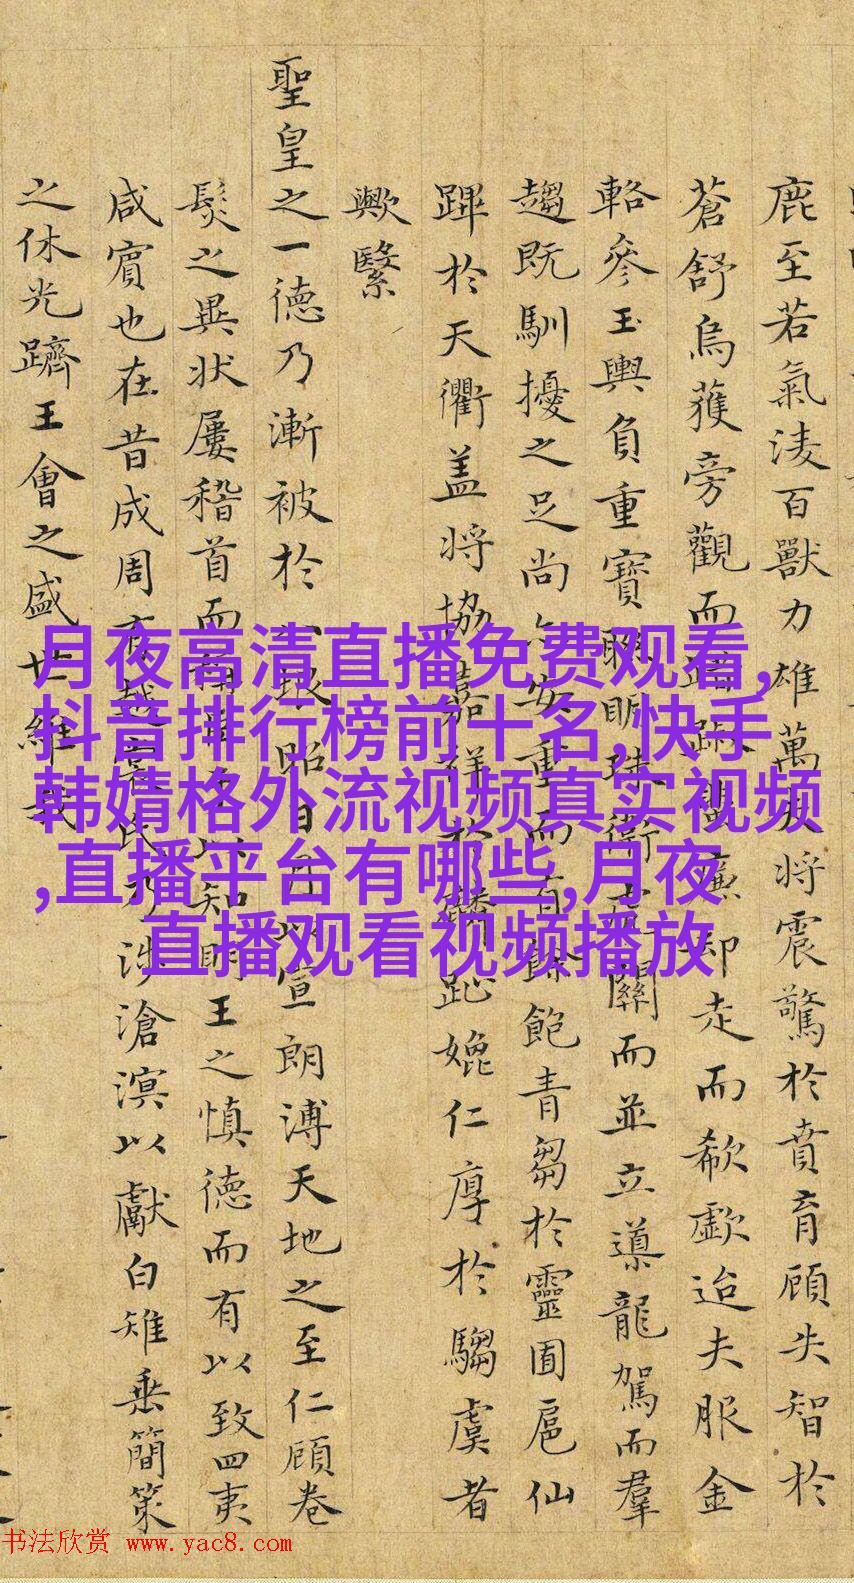 鹿至若氣淩百獸力雄萬夫将震驚於賁育顧失智於
蒼舒烏獲旁觀而踏踧蜚廉却走而欷歔迨夫服金
輅參玉輿負重寶聯眤珠衛虚關而並立導龍駕而羣
趨既馴擾之足尚安重而有餘飽青芻於靈囿扈仙
蹕於天衢盖将協嘉祥於麟趾媲仁厚於騶虞者
歟繄
聖皇之一德乃漸被於日月以宣朗溥天地之至仁顧卷
髮之異状屢稽首而知明王之慎德而有以致四夷
咸賓也在昔成周有越裳氏乃涉滄溟以獻白雉垂簡策
之休光躋王會之盛世維我
月夜高清直播免费观看,
抖音排行榜前十名,快手
韩婧格外流视频真实视频
,直播平台有哪些,月夜
直播观看视频播放
书法欣赏 www.yac8.com